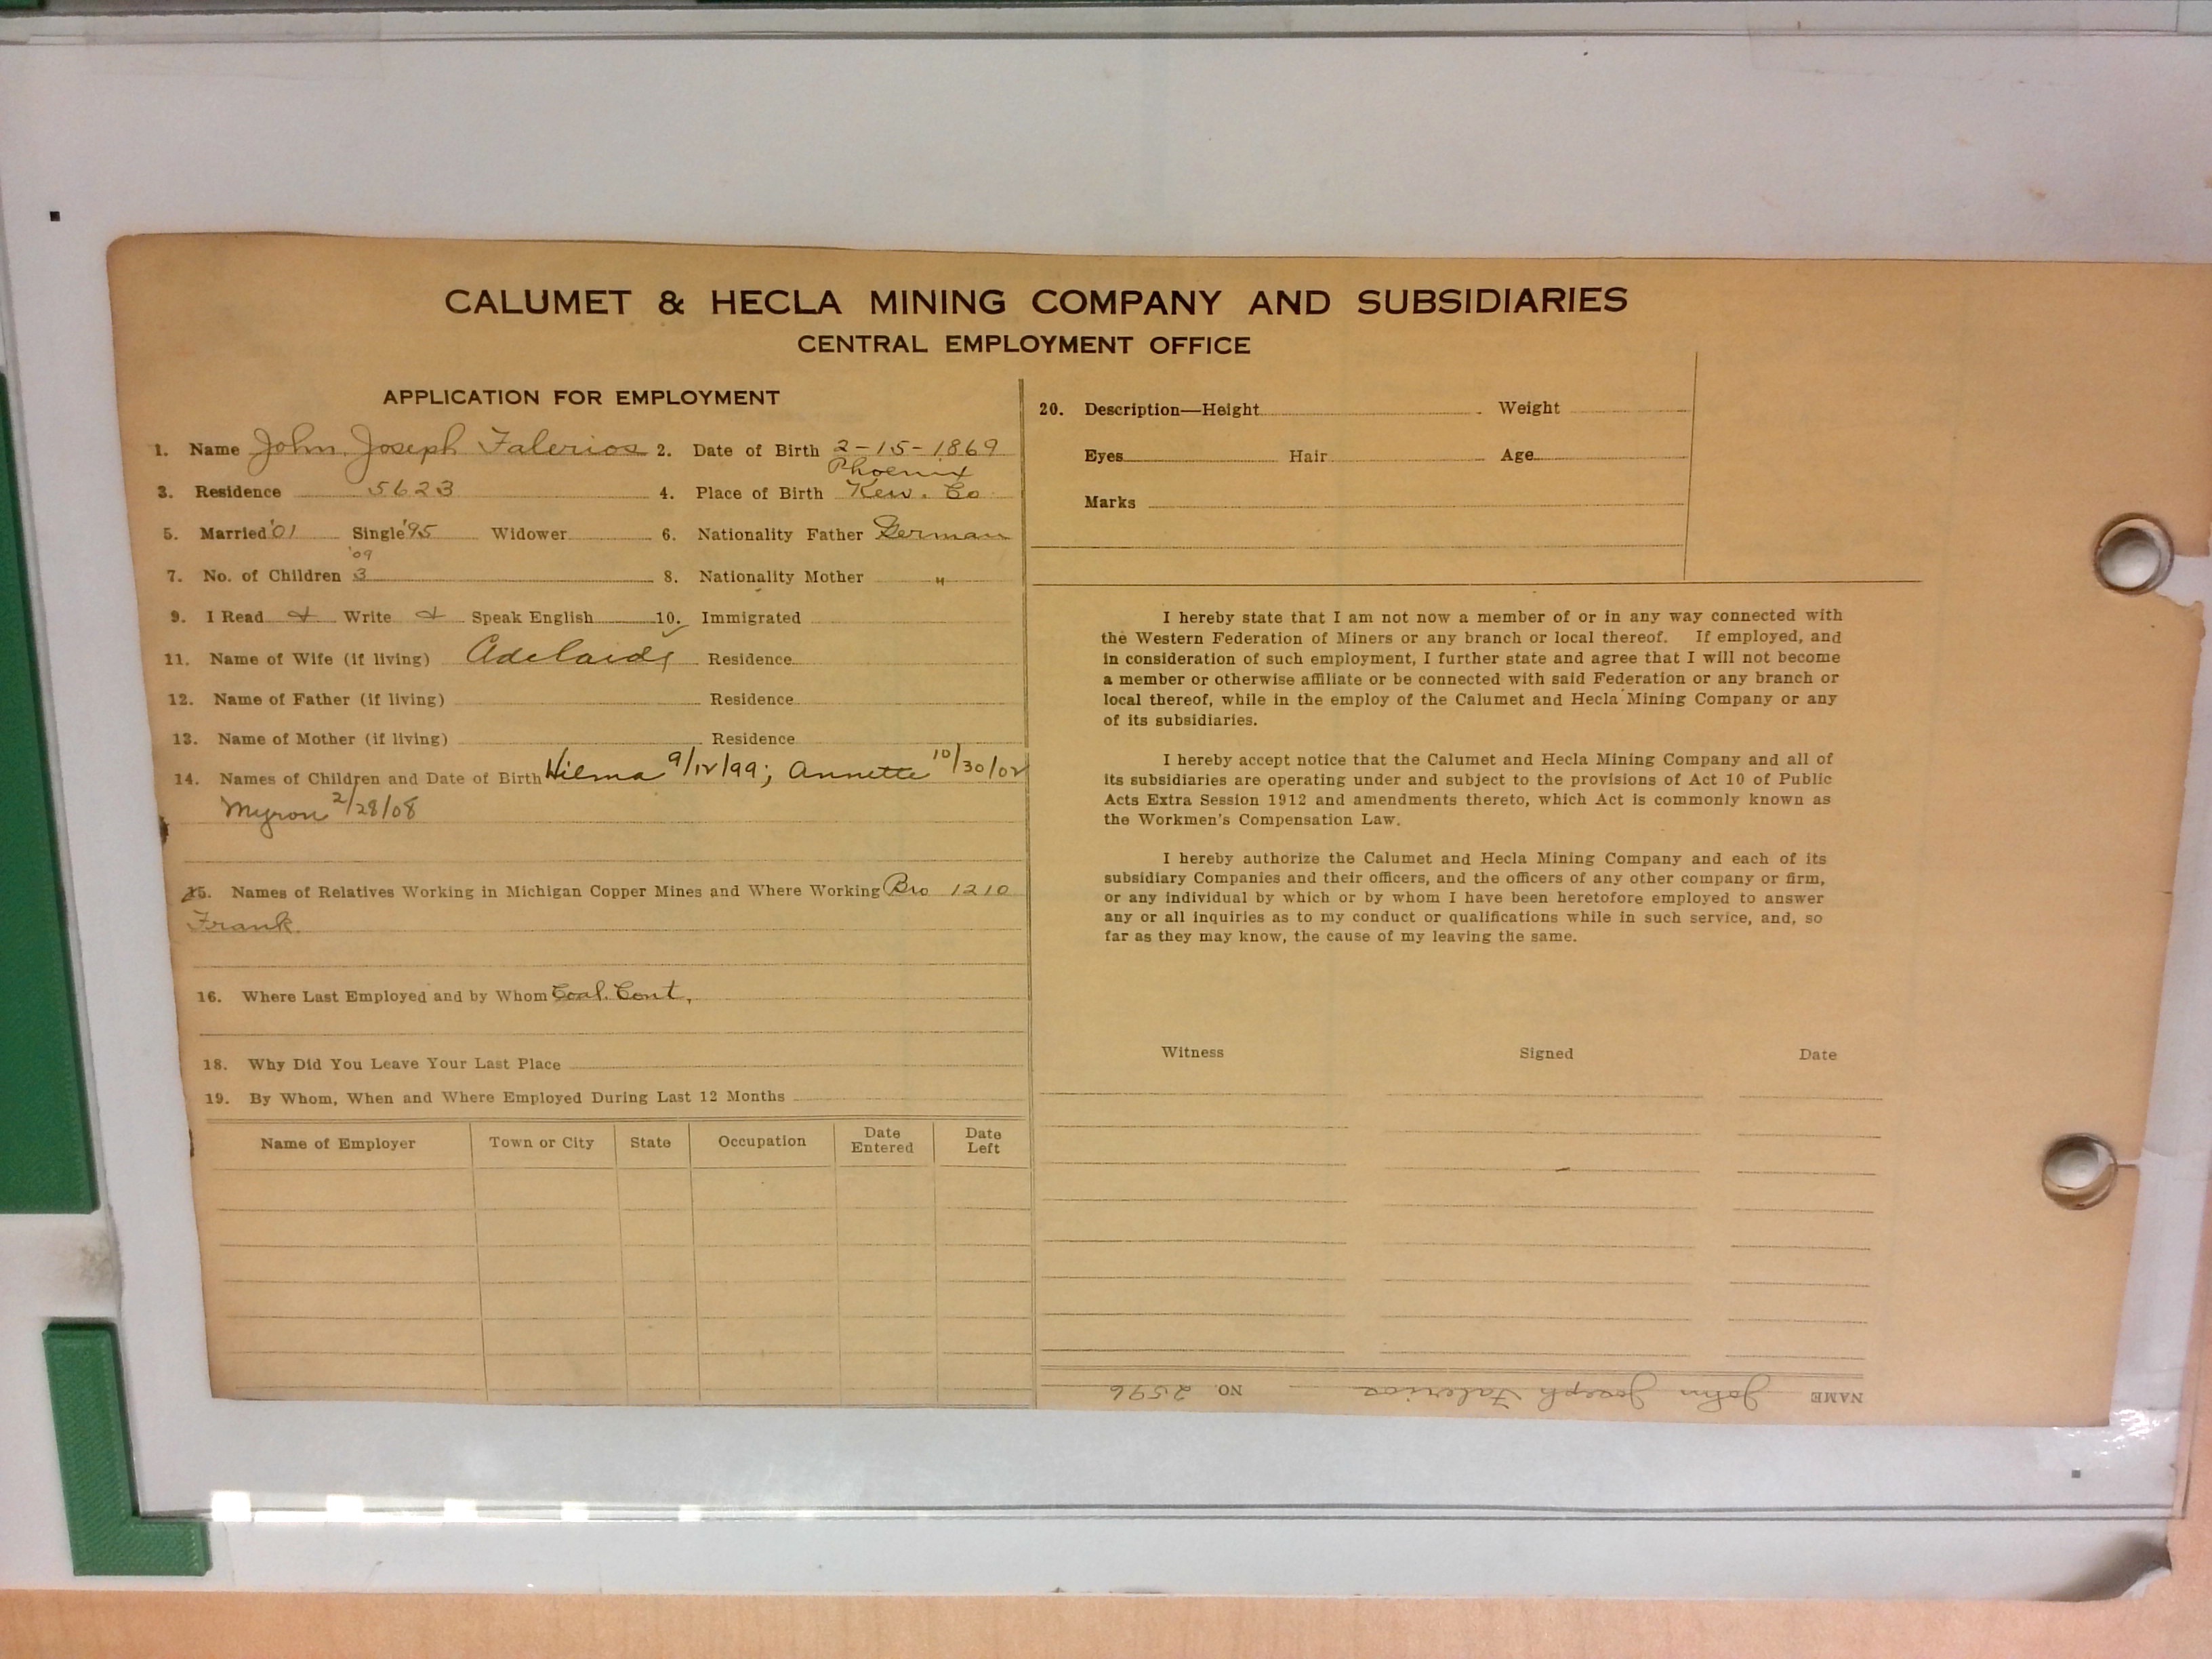 CALUMET & HECLA MINING COMPANY AND SUBSIDIARIES
CENTRAL EMPLOYMENT OFFICE
APPLICATION FOR EMPLOYMENT
1. Name John Joseph Falerios 2. Date of Birth 2-15-1869
Phoenix
3. Residence 5623 4. Place of Birth Kew. Co
5. Married '01 Single '95 Widower 6. Nationality Father German
'09
7. No. of Children 3 8. Nationality Mother "
9. I Read Write Speak English 10. Immigrated
11. Name of Wife (if living) Adelaide Residence
12. Name of Father (if living) Residence
13. Name of Mother (if living) Residence
14. Names of Children and Date of Birth Wilma 9/12/99; Annette 10/30/02
Myron 2/28/08
15. Names of Relatives Working in Michigan Copper Mines and Where Working Bro 1210
Frank
16. Where Last Employed and by Whom Coal. Cont,
18. Why Did You Leave Your Last Place
19. By Whom, When and Where Employed During Last 12 Months
Name of Employer Town or City State Occupation Date Entered Date Left
20. Description—Height Weight
Eyes Hair Age
Marks
I hereby state that I am not now a member of or in any way connected with
the Western Federation of Miners or any branch or local thereof. If employed, and
in consideration of such employment, I further state and agree that I will not become
a member or otherwise affiliate or be connected with said Federation or any branch or
local thereof, while in the employ of the Calumet and Hecla Mining Company or any
of its subsidiaries.
I hereby accept notice that the Calumet and Hecla Mining Company and all of
its subsidiaries are operating under and subject to the provisions of Act 10 of Public
Acts Extra Session 1912 and amendments thereto, which Act is commonly known as
the Workmen's Compensation Law.
I hereby authorize the Calumet and Hecla Mining Company and each of its
subsidiary Companies and their officers, and the officers of any other company or firm,
or any individual by which or by whom I have been heretofore employed to answer
any or all inquiries as to my conduct or qualifications while in such service, and, so
far as they may know, the cause of my leaving the same.
Witness Signed Date
NAME John Joseph Falerios NO. 2596